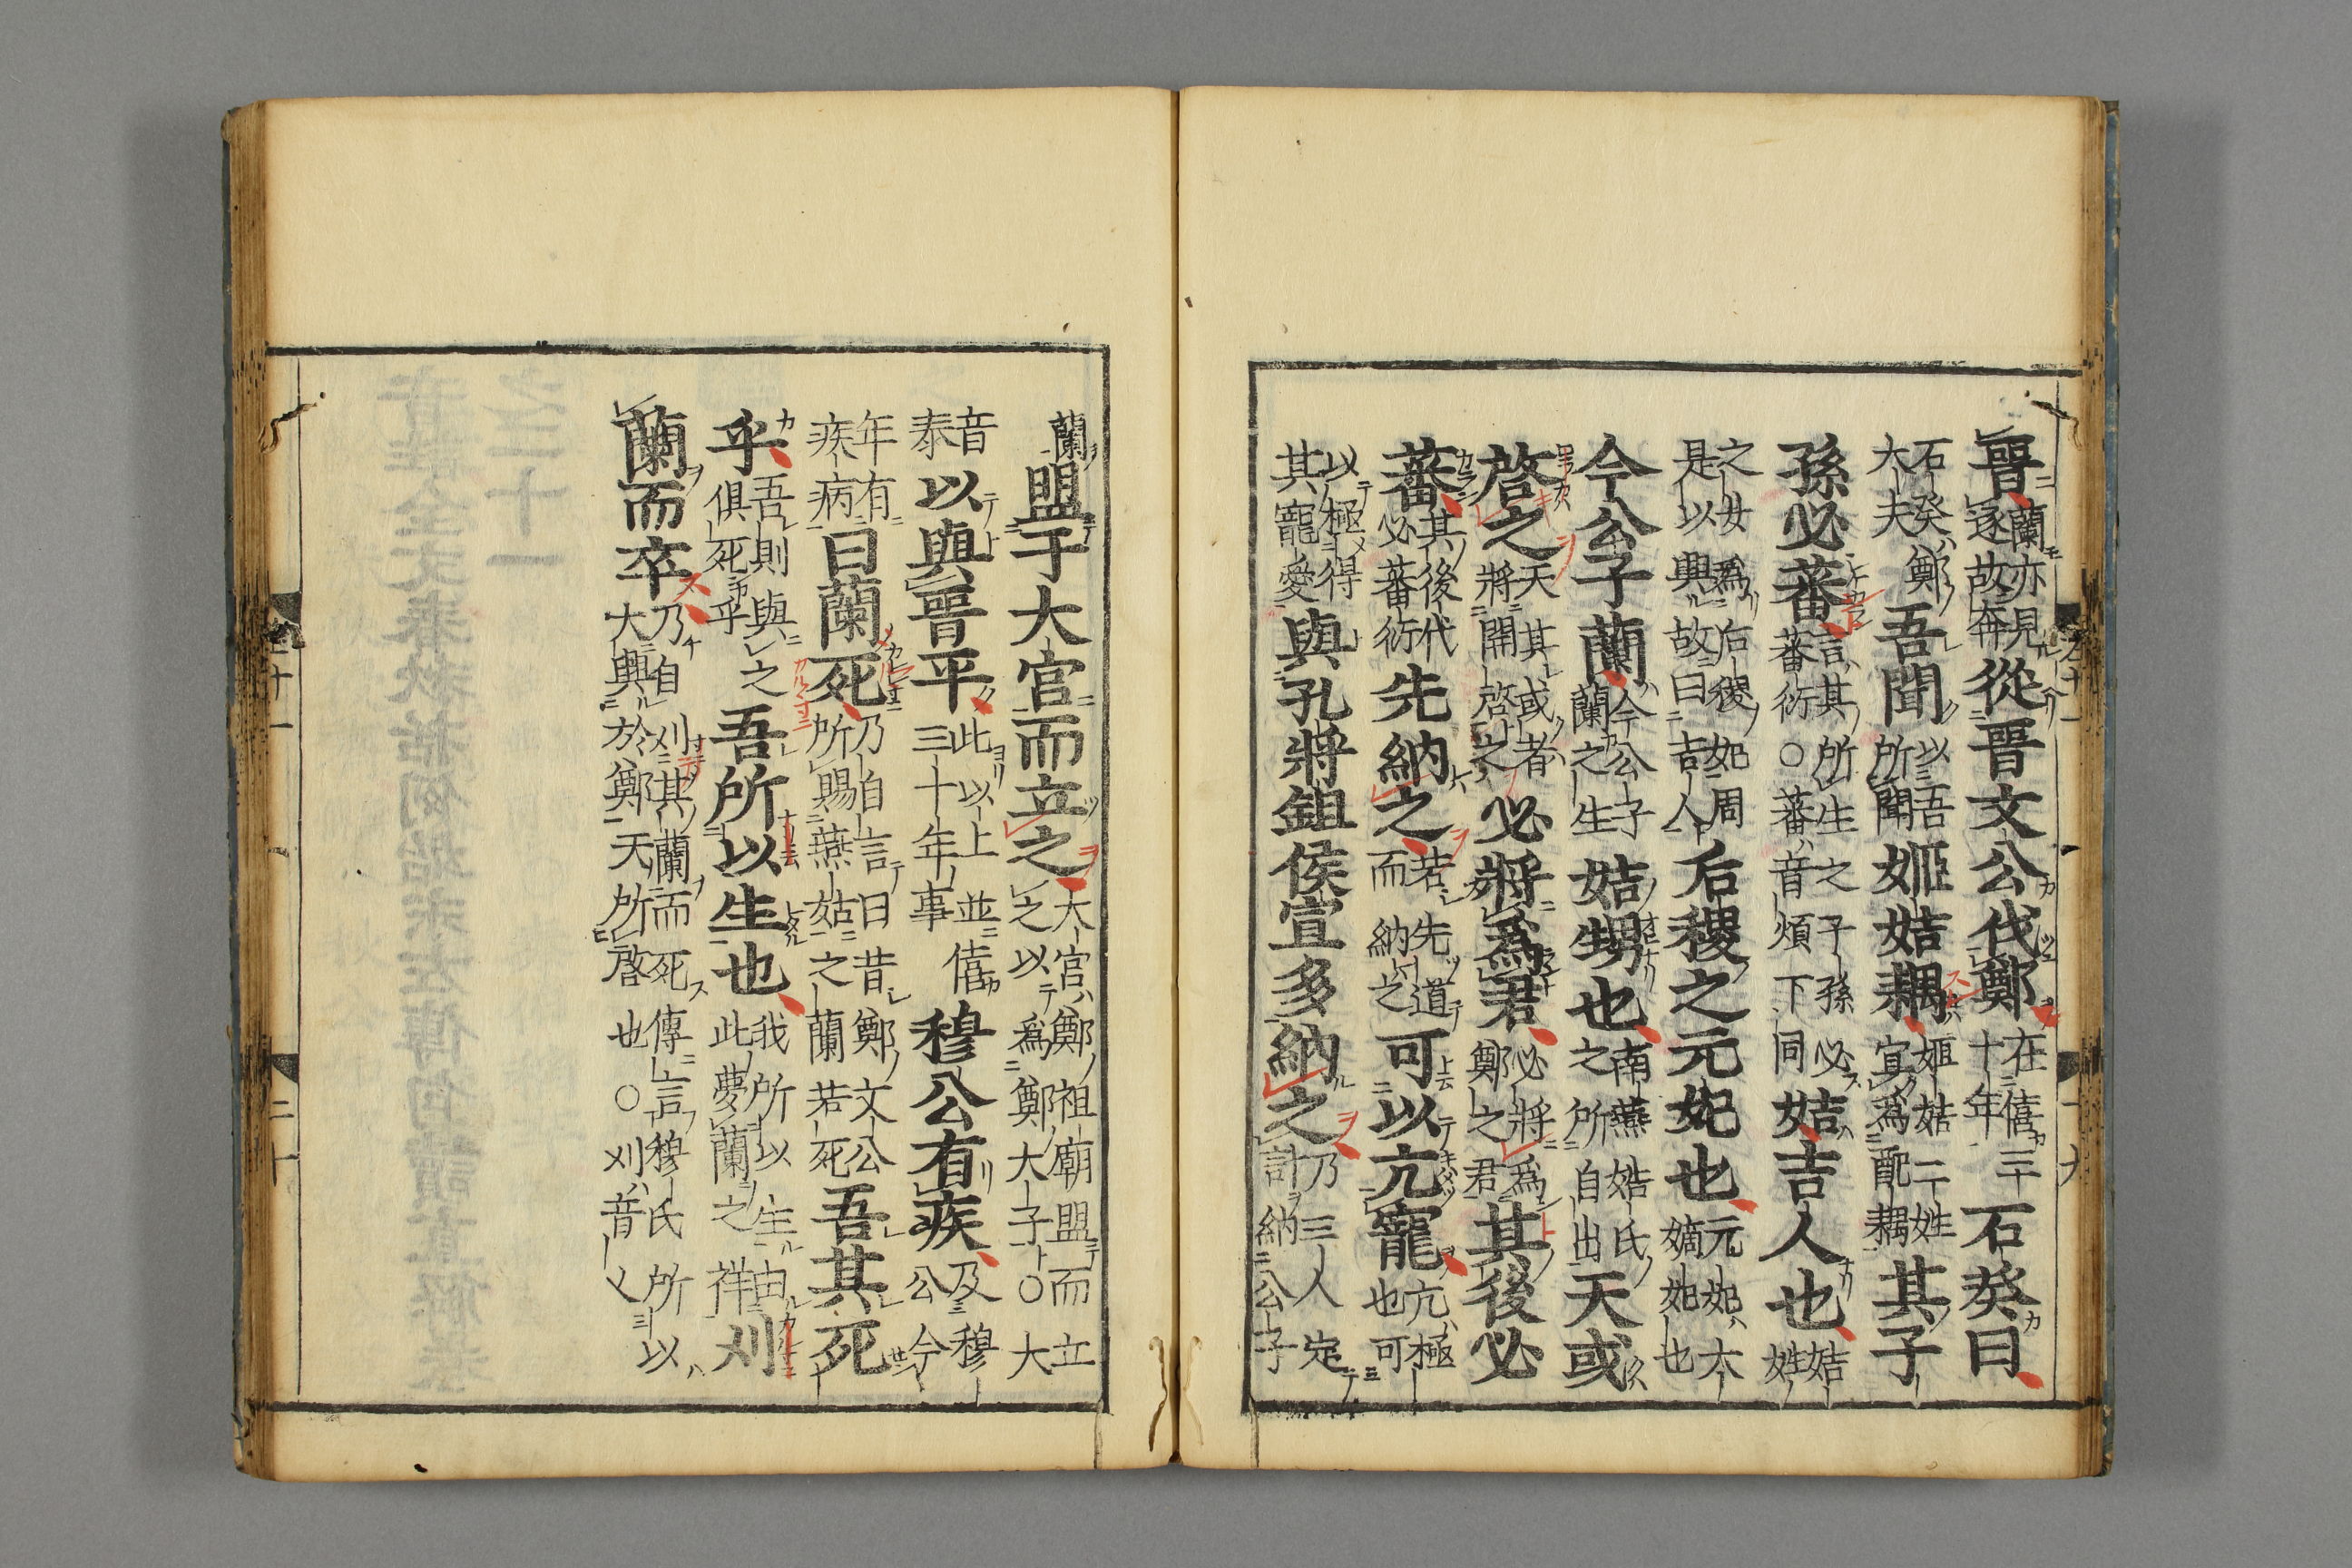 晉蘭亦見逐故奔從晉文公伐鄭在僖三十年石癸曰
石癸鄭大夫吾聞以吾所聞姬姞耦姬姞二姓宜爲配耦其子
孫必蕃言其所生之子孫必蕃衍○蕃音煩下同姞吉人也姞姓
之女爲后稷妃周是以興故曰吉人后稷之元妃也元妃大嫡妃也
今公子蘭今公子蘭之生姞甥也南燕姞氏之所自出天或
啓之天其或者將開啓之必將爲君必將爲鄭之君其後必
蕃其後代必蕃衍先納之若先道而納之可以亢寵亢極也可
以極得其寵愛與孔將鉏侯宣多納之乃三人定計納公子
蘭盟于大官而立之大官鄭祖廟盟而立之以爲鄭大子○大
音泰以與晉平此以上並僖三十年事穆公有疾及穆公今
年有疾病曰蘭死乃自言曰昔鄭文公所賜燕姑之蘭若死吾其死
乎吾則與之俱死乎吾所以生也我所以生由此夢蘭之祥刈
蘭而卒乃自刈其蘭而死傳言穆氏所以大興於鄭天所啓也○刈音乂
二十